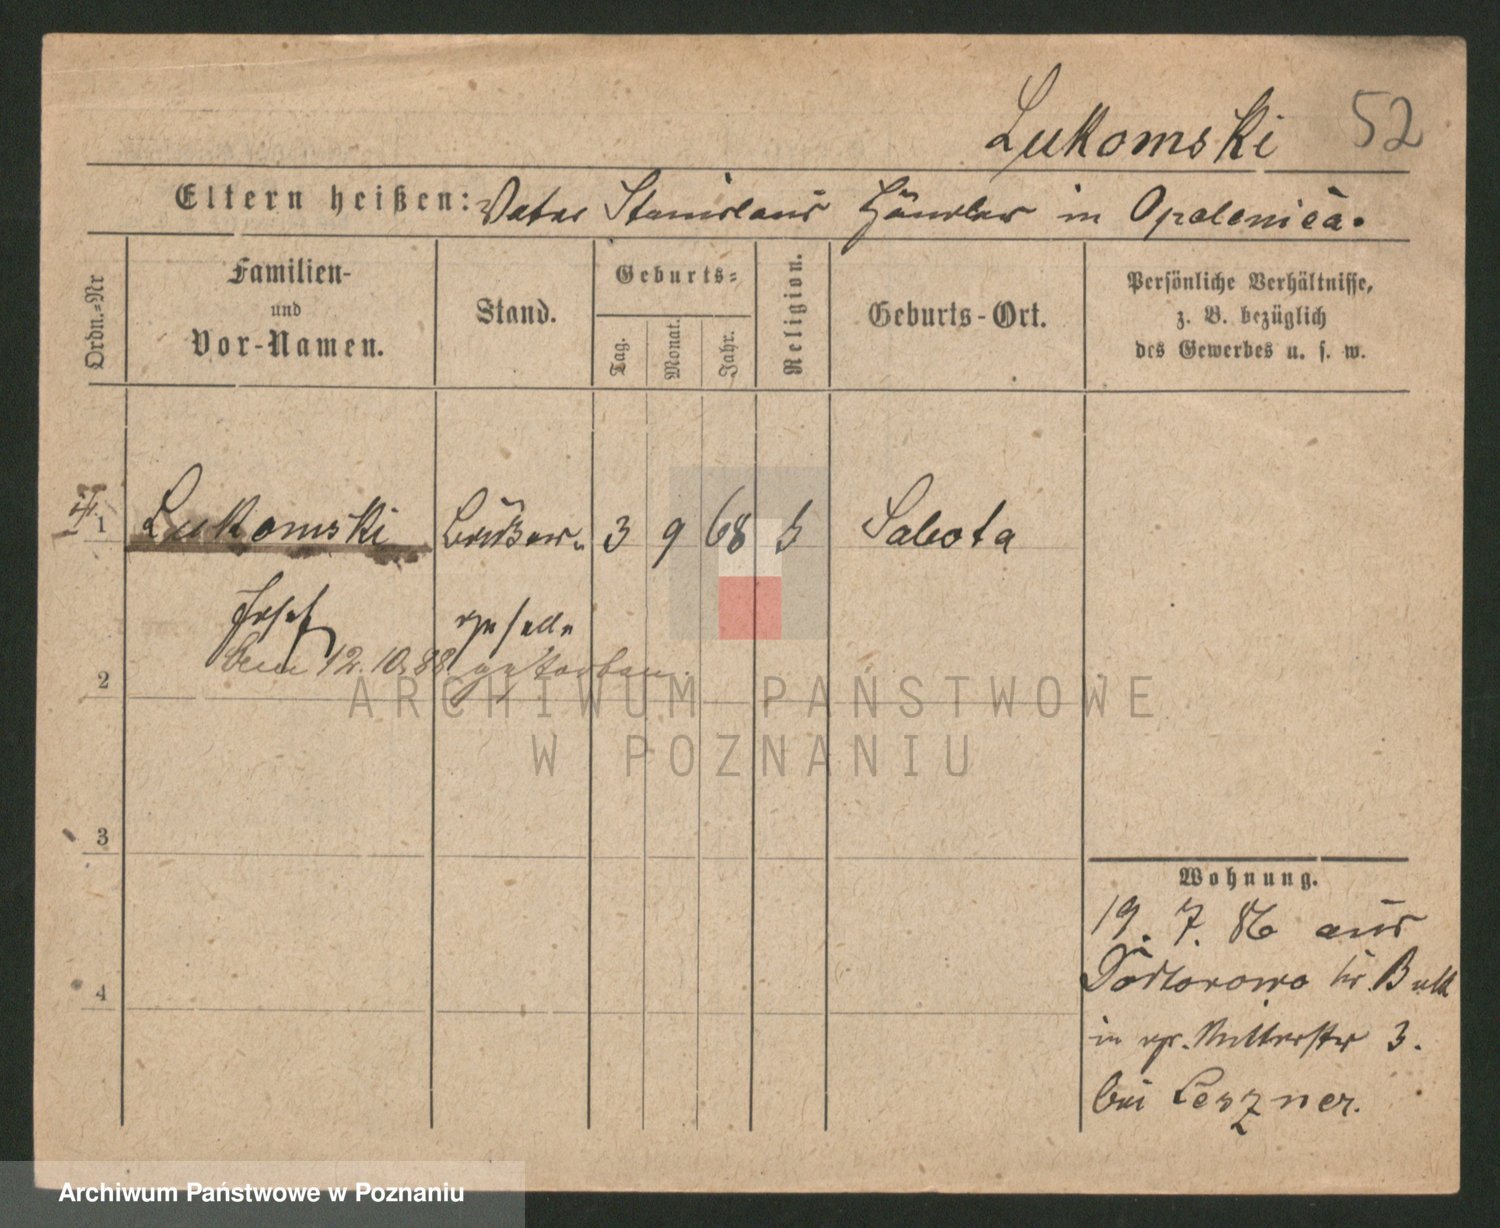 Lukomski 52
Eltern heißen: Vater Stanislaus Händler in Opalenica.
Ordn.-Nr
Familien-
und
Vor-Namen.
Stand.
Geburts-
Tag.
Monat.
Jahr.
Religion.
Geburts-Ort.
Persönliche Verhältnisse,
z. B. bezüglich
des Gewerbes u. s. w.
1 Lukomski 3 9 68 Sabota
Josef geselle
dem 12.10.88 gestorben.
2
3
4
Wohnung.
19. 7. 86 aus
Kr. Buk
in gr. Ritterstr 3.
bei Leszner.
ARCHIWUM PAŃSTWOWE
W POZNANIU
Archiwum Państwowe w Poznaniu